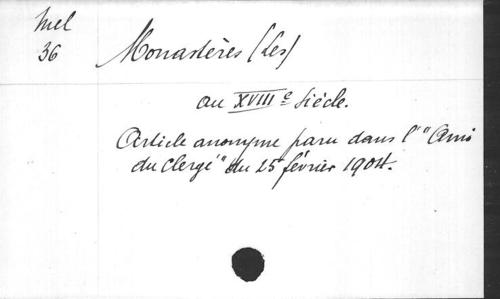 Mel
36
Monastères (Les)
au XVIIIe Siècle.
Article anonyme paru dans l'"Ami
du Clergé" du 25 février 1904.